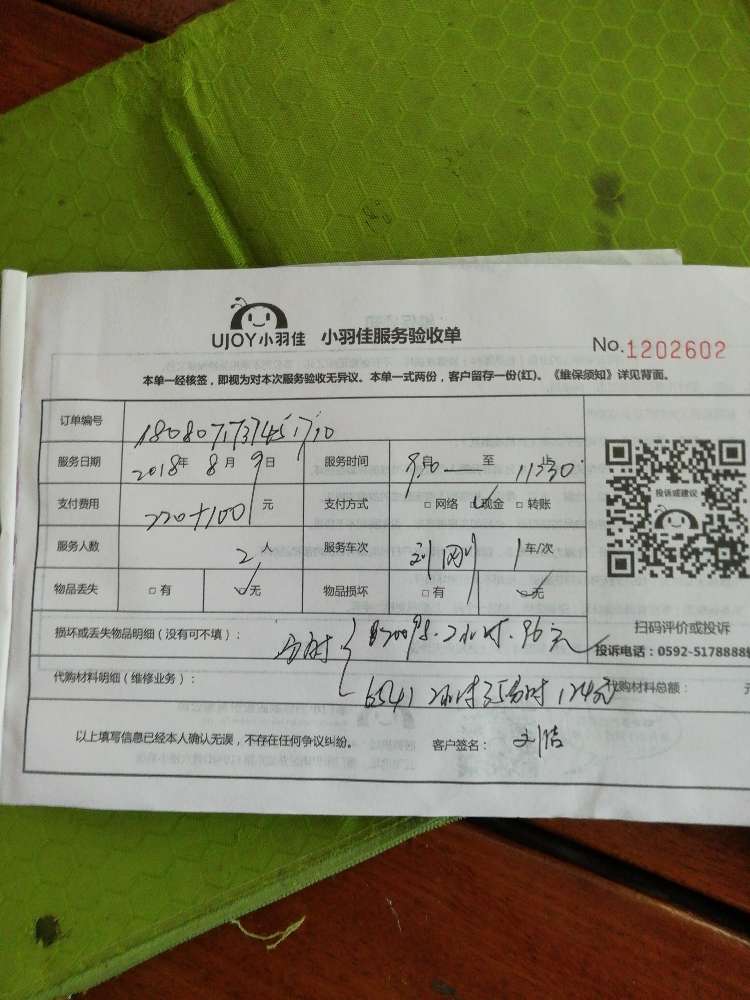 UJOY小羽佳 小羽佳服务验收单 No.1202602
本单一经核签，即视为对本次服务验收无异议。本单一式两份，客户留存一份(红)。《维保须知》详见背面。
订单编号
服务日期 2018年8月9日 服务时间 自 至 11:30 止
支付费用 220+100 元 支付方式 □网络 ☑现金 □转账
服务人数 2人 服务车次 1车/次
物品丢失 □有 ☑无 物品损坏 □有 ☑无
投诉或建议
扫码评价或投诉
损坏或丢失物品明细（没有可不填）： 2小时.96元
投诉电话：0592-5178888
代购材料明细（维修业务）： 6541 2小时 124元 代购材料总额： 元
以上填写信息已经本人确认无误，不存在任何争议纠纷。 客户签名：